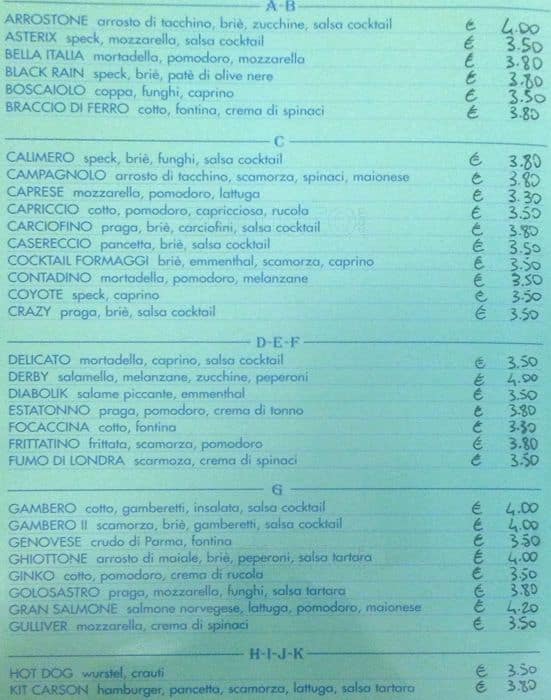 A-B
ARROSTONE arrosto di tacchino, briè, zucchine, salsa cocktail € 4.00
ASTERIX speck, mozzarella, salsa cocktail € 3.50
BELLA ITALIA mortadella, pomodoro, mozzarella € 3.80
BLACK RAIN speck, briè, patè di olive nere € 3.80
BOSCAIOLO coppa, funghi, caprino € 3.50
BRACCIO DI FERRO cotto, fontina, crema di spinaci € 3.80
C
CALIMERO speck, briè, funghi, salsa cocktail € 3.80
CAMPAGNOLO arrosto di tacchino, scamorza, spinaci, maionese € 3.80
CAPRESE mozzarella, pomodoro, lattuga € 3.30
CAPRICCIO cotto, pomodoro, capricciosa, rucola € 3.50
CARCIOFINO praga, briè, carciofini, salsa cocktail € 3.80
CASERECCIO pancetta, briè, salsa cocktail € 3.50
COCKTAIL FORMAGGI briè, emmenthal, scamorza, caprino € 3.50
CONTADINO mortadella, pomodoro, melanzane € 3.50
COYOTE speck, caprino € 3.50
CRAZY praga, briè, salsa cocktail € 3.50
D-E-F
DELICATO mortadella, caprino, salsa cocktail € 3.50
DERBY salamella, melanzane, zucchine, peperoni € 4.00
DIABOLIK salame piccante, emmenthal € 3.50
ESTATONNO praga, pomodoro, crema di tonno € 3.80
FOCACCINA cotto, fontina €
FRITTATINO frittata, scamorza, pomodoro € 3.80
FUMO DI LONDRA scarmoza, crema di spinaci € 3.50
G
GAMBERO cotto, gamberetti, insalata, salsa cocktail € 4.00
GAMBERO II scamorza, briè, gamberetti, salsa cocktail € 4.00
GENOVESE crudo di Parma, fontina € 3.50
GHIOTTONE arrosto di maiale, briè, peperoni, salsa tartara € 4.00
GINKO cotto, pomodoro, crema di rucola € 3.50
GOLOSASTRO praga, mozzarella, funghi, salsa tartara € 3.80
GRAN SALMONE salmone norvegese, lattuga, pomodoro, maionese € 4.20
GULLIVER mozzarella, crema di spinaci € 3.50
H-I-J-K
HOT DOG wurstel, crauti € 3.50
KIT CARSON hamburger, pancetta, scamorza, lattuga, salsa tartara € 3.80